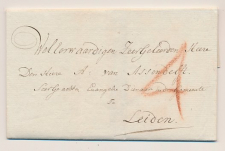 Wel Eerwaardigen Zeer Geleerden Heere
Den Heere A. van Assendelft
Evangelie
te
Leiden.
4